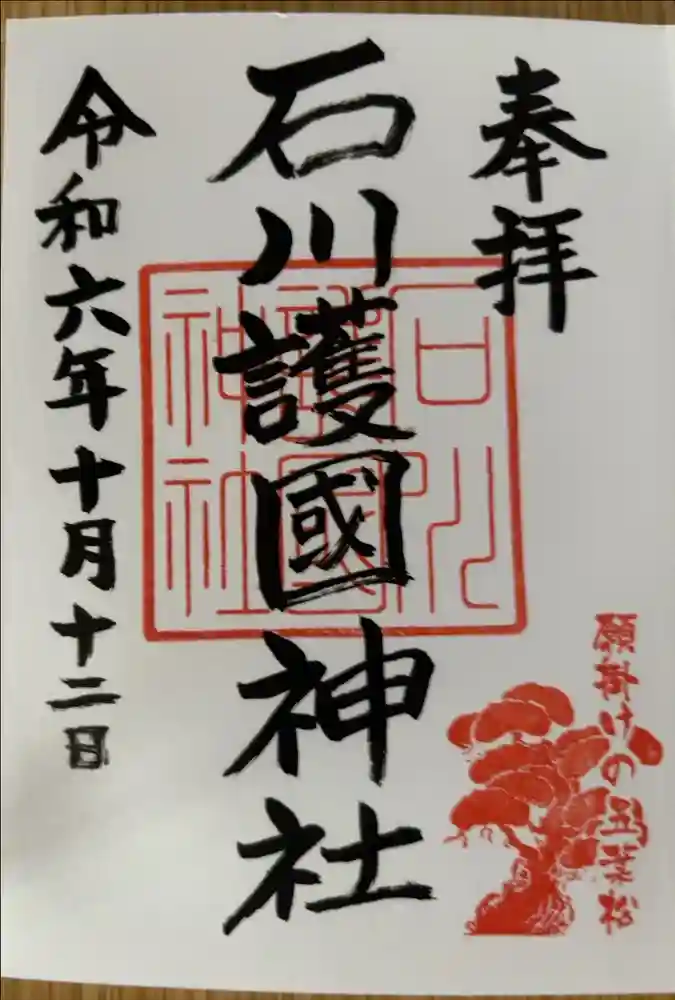 奉拝
石川護國神社
令和六年十月十二日
石川護國神社
願掛けの五葉松